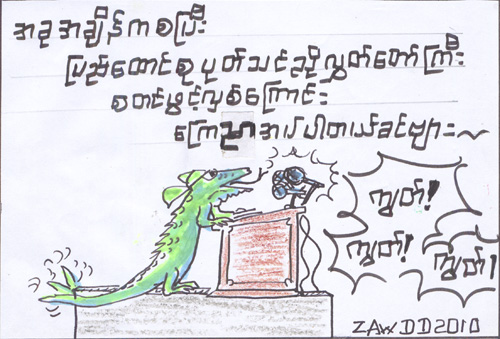 အခုအချိန်ကစပြီး
ပြည်ထောင်စုပုတ်သင်ညိုလွှတ်တော်ကြီး
စတင်ဖွင့်လှစ်ကြောင်း
ကြေညာအပ်ပါတယ်ခင်ဗျား~
ကျွတ်!
ကျွတ်!
ကျွတ်!
ZAW DD2010